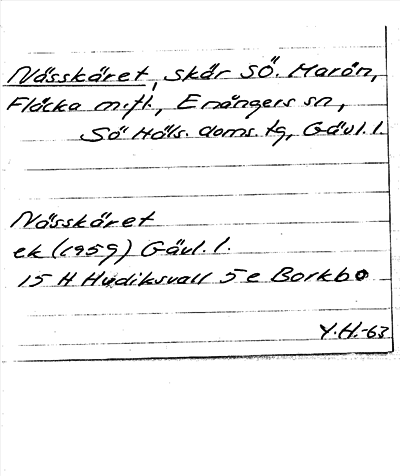 Nässkäret, skär SÖ. Marön,
Flacka m.fl., Enångers sn,
SÖ Häls. doms. tg, Gävl. l.
Nässkäret
ek (1959) Gävl. l.
15 H Hudiksvall 5 e Borkbo
Y.H.-63